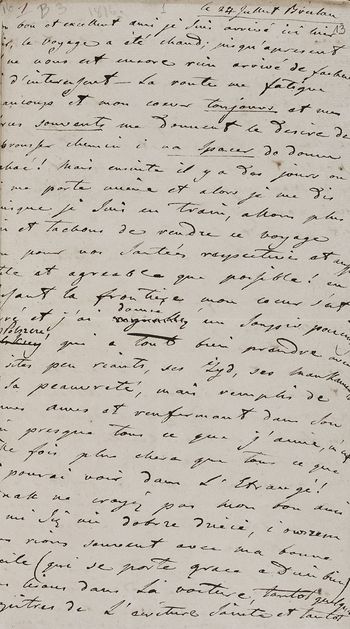 le 24 Juillet
bon et excellent ami je suis arrivé ici
le voyage a été chaud; jusqu'apresent
ne nous est encore rien arrivé de facheux
d'interessent - La route me fatigue
aucoup et mon coeur toujours et mes
souvents me donnent le desire de
chemin i na spacer do domu
! Mais ensuite il y a des jours où
me porte mieux et alors je me dis
isque je suis en train, allons plus
n et tachons de rendre ce voyage
pour nos santées respectives et
et agreable que possible! en
sant la frontiere mon coeur s'est
et j'ai donné un soupir pour
qui a tout bien prendre
sites peu riants, ses Żyd, ses
sa peauvreté, mais remplis de
nes ames et renfermant dans son
n presque tous ce que j'aime, m'est
fois plus chere que tous ce que
pourai voir dans L'Etrangé!
nak ne croyez pas mon bon ami
mi się nie dobrze dzieie, i owszem
nous rions souvent avec ma bonne
(qui se porte grace a Dieu bien)
lisons dans La voiture, tantot quelques
pitres de L'ecriture Sainte et tantot